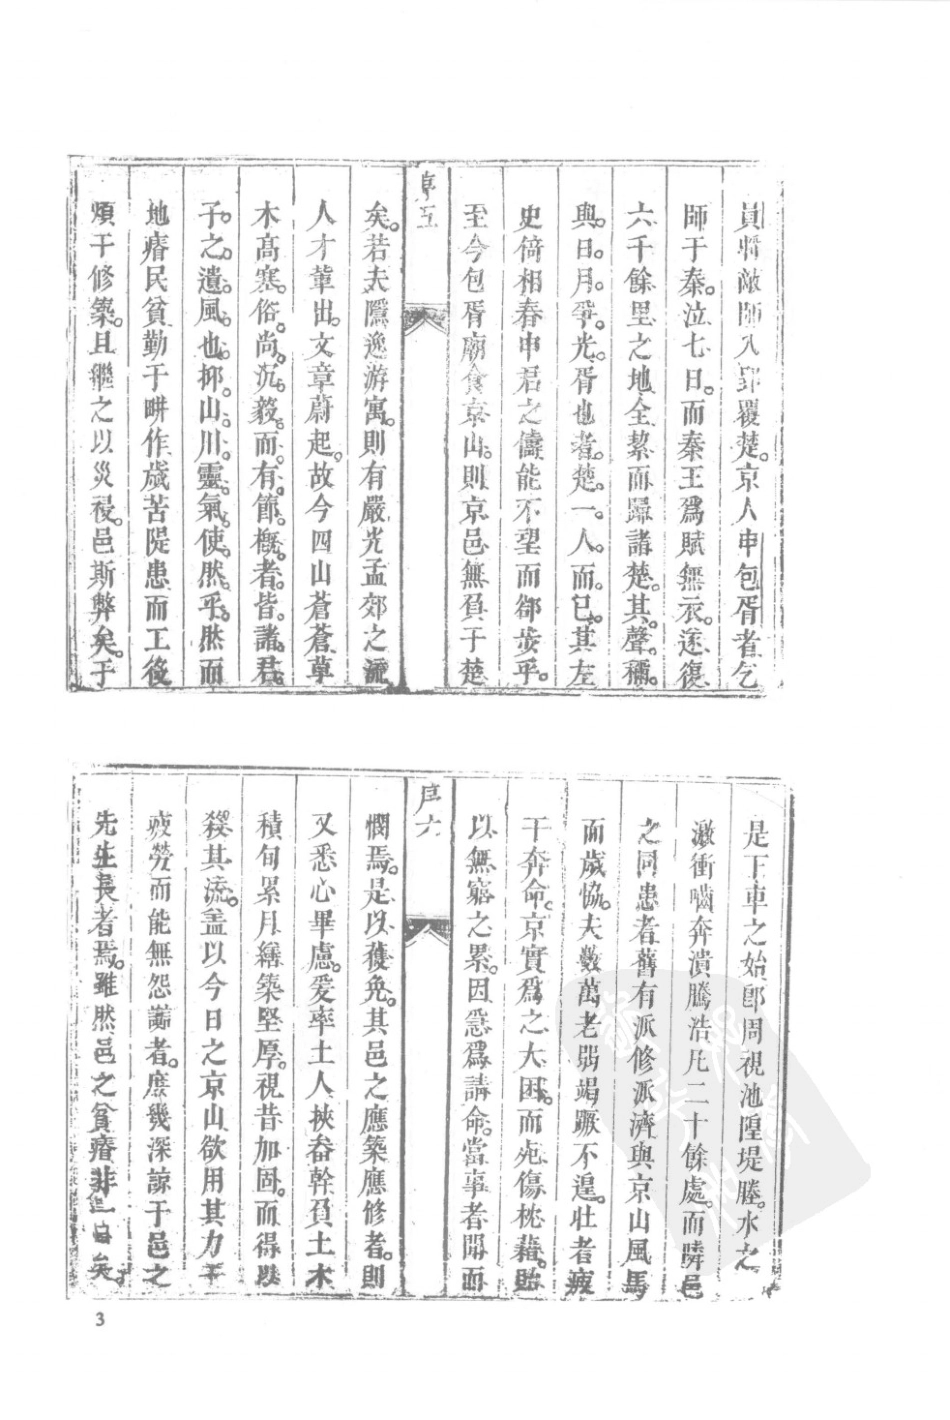 員將敵師入郢覆楚。京人申包胥者乞
師于秦。泣七日。而秦王爲賦無衣。遂復
六千餘里之地全挈而歸諸楚。其聲稱。
與。日。月。爭。光。胥也者。楚。一。人。而。已。其左
史倚相春申君之儔能不望而卻步乎。
至今包胥廟食京山。則京邑無負于楚
序五
矣。若夫隱逸游寓。則有嚴光孟郊之流
人才輩出。文章蔚起。故今四山蒼蒼草
木高寒。俗。尚。沉。毅。而。有。節。概。者。皆。諸。君。
子。之。遺。風。也。抑。山。川。靈。氣。使。然。乎。然而
地瘠民貧勤于畊作歲苦隄患而工役
煩于修築。且繼之以災祲。邑斯弊矣。于
是下車之始卽周視池隍堤塍。水之
潄衝嚙奔潰騰浩凡二十餘處。而隣邑
之同患者舊有派修派濟與京山風馬
而歲恊。夫數萬老弱竭蹶不遑。壯者疲
于奔命。京實爲之大困。而死傷枕藉。貽
以無窮之累。因急爲請命。當事者聞而
序六
憫焉。是以獲免。其邑之應築應修者。則
又悉心畢慮。爰率土人挾畚幹負土木
積旬累月繕築堅厚。視昔加固。而得以
殺其流。盖以今日之京山欲用其力于
疲勞而能無怨讟者。庶幾深諒于邑之
先生長者焉。雖然邑之貧瘠非一日矣。
3